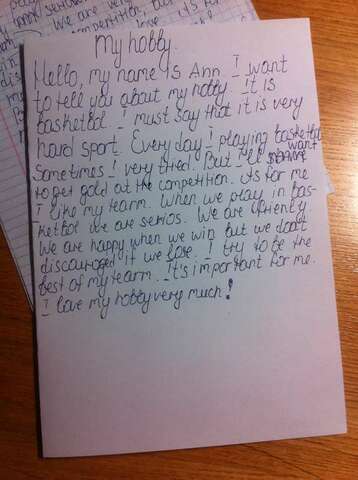 My hobby.
Hello, my name is Ann. I want
to tell you about my hobby. It is
basketbol. I must say that it is very
hard sport. Every day I playing basketbol
Sometimes I very tired. But I'll want
to get gold at the competition. As for me
I like my team. When we play in bas-
ketbol we are serios. We are friendly
We are happy when we win but we don't
discouraged if we lose. I try to be the
best of my team. It's important for me.
I love my hobby very much!